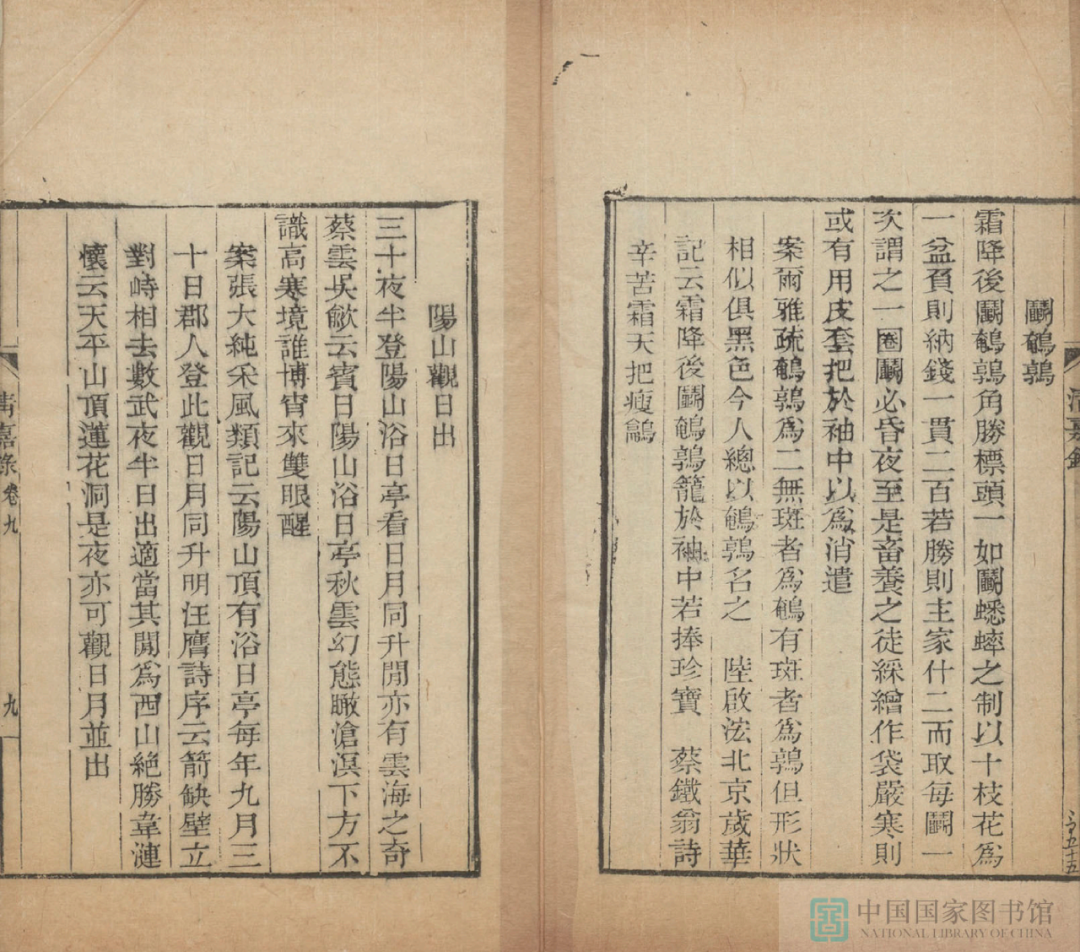 鬭鵪鶉
霜降後鬭鵪鶉角勝標頭一如鬭蟋蟀之制以十枝花爲
一盆負則納錢一貫二百若勝則主家什二而取每鬭一
次謂之一圈鬭必昏夜至是畜養之徒綵繒作袋嚴寒則
或有用皮套把於袖中以爲消遣
案爾雅疏鵪鶉爲二無斑者爲鵪有斑者爲鶉但形狀
相似俱黑色今人總以鵪鶉名之 陸啟浤北京歲華
記云霜降後鬭鵪鶉籠於袖中若捧珍寶 蔡鐵翁詩
辛苦霜天把瘦鷸
陽山觀日出
三十夜半登陽山浴日亭看日月同升閒亦有雲海之奇
蔡雲吳歈云賓日陽山浴日亭秋雲幻態瞰滄溟下方不
識高寒境誰博宵來雙眼醒
案張大純采風類記云陽山頂有浴日亭每年九月三
十日郡人登此觀日月同升明汪膺詩序云箭缺壁立
對峙相去數武夜半日出適當其閒爲西山絶勝韋漣
懷云天平山頂蓮花洞是夜亦可觀日月並出
清嘉錄卷九
九
中国国家图书馆
NATIONAL LIBRARY OF CHINA